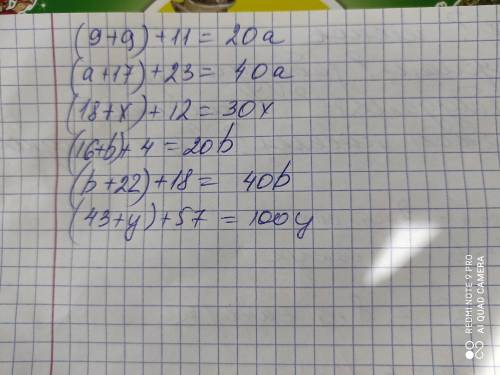 (9+9)+11= 20a
(a+17)+23= 40a
(18+x)+12=30x
(16+b)+4=20b
(b+22)+18= 40b
(43+y)+57 =100y
REDMI NOTE 9 PRO
AI QUAD CAMERA